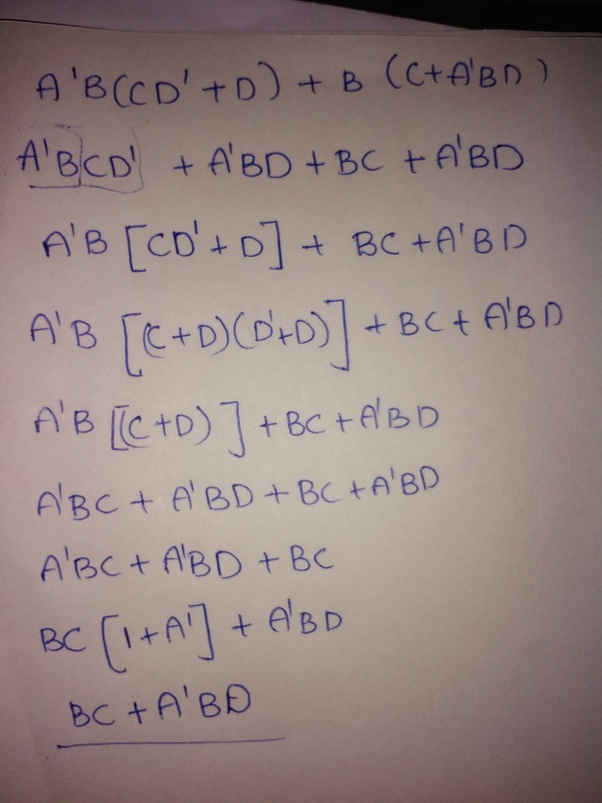 A'B(CD' + D) + B (C+A'BD)
A'BCD' + A'BD + BC + A'BD
A'B [CD' + D] + BC + A'BD
A'B [(C+D)(D'+D)] + BC + A'BD
A'B [(C+D)] + BC + A'BD
A'BC + A'BD + BC + A'BD
A'BC + A'BD + BC
BC [1+A'] + A'BD
BC + A'BD